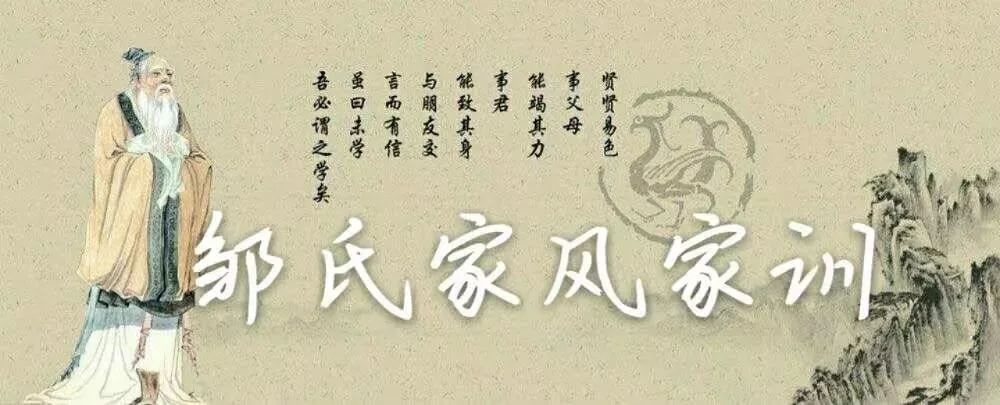 贤贤易色
事父母
能竭其力
事君
能致其身
与朋友交
言而有信
虽曰未学
吾必谓之学矣
邹氏家风家训